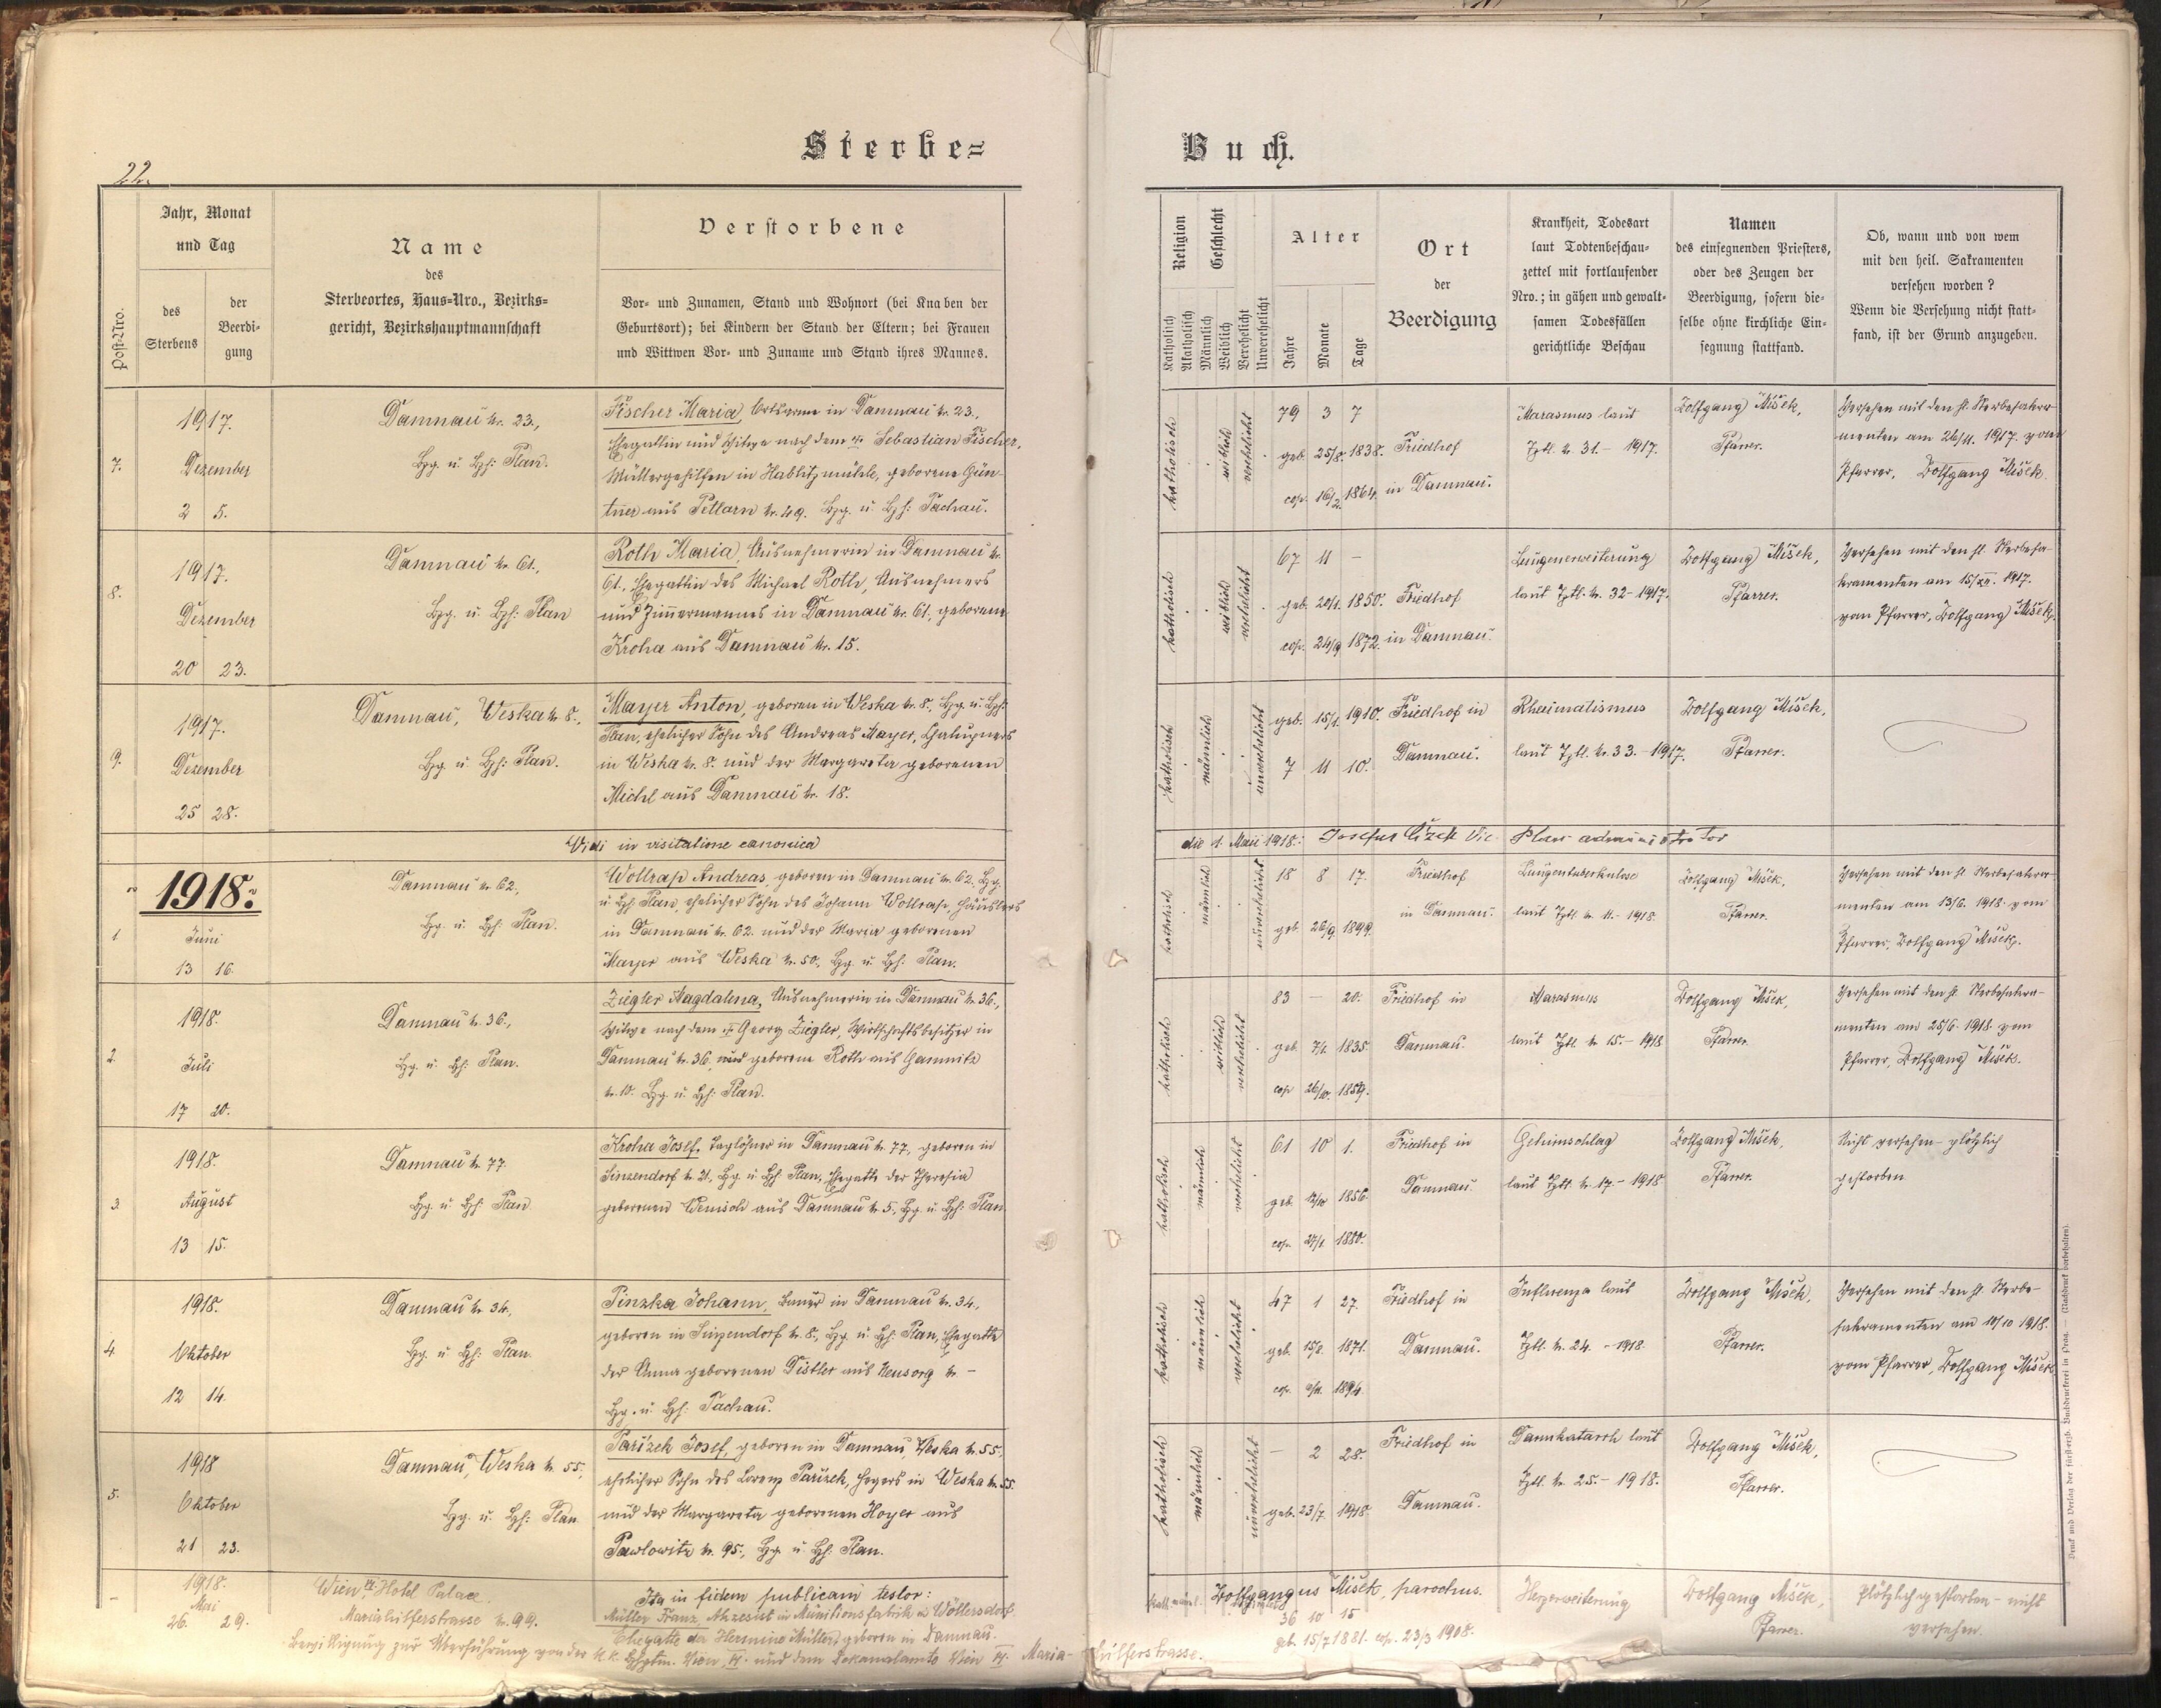 22.
Sterbe=
Buch.
Post-Nro.
Jahr, Monat
und Tag
des
Sterbens
der
Beerdi-
gung
Name
des
Sterbeortes, Haus-Nro., Bezirks-
gericht, Bezirkshauptmannschaft
Verstorbene
Vor- und Zunamen, Stand und Wohnort (bei Knaben der
Geburtsort); bei Kindern der Stand der Eltern; bei Frauen
und Wittwen Vor- und Zuname und Stand ihres Mannes.
Religion
Katholisch
Akatholisch
Geschlecht
Männlich
Weiblich
Verehelicht
Unverehelicht
Alter
Jahre
Monate
Tage
Ort
der
Beerdigung
Krankheit, Todesart
laut Todtenbeschau-
zettel mit fortlaufender
Nro.; in gähen und gewalt-
samen Todesfällen
gerichtliche Beschau
Namen
des einsegnenden Priesters,
oder des Zeugen der
Beerdigung, sofern die-
selbe ohne kirchliche Ein-
segnung stattfand.
Ob, wann und von wem
mit den heil. Sakramenten
versehen worden?
Wenn die Versehung nicht statt-
fand, ist der Grund anzugeben.
7.
1917.
Dezember
2 5.
Damnau Nr. 23.,
Bzg. u. Bzh: Plan.
Fischer Maria, Ortsarme in Damnau Nr. 23.,
Ehegattin und Witwe nach dem Sebastian Fischer,
Müllergehilfen in Hablitzmühle, geborene Gün-
tner aus Petlarn Nr. 49. Bzg. u. Bzh: Tachau.
katholisch
weiblich
verehelicht
79 3 7
geb. 25/8. 1838.
cop. 16/2. 1864.
Friedhof
in Damnau.
Marasmus laut
Zttl. Nr. 31. - 1917.
Wolfgang Mišek,
Pfarrer.
Versehen mit den hl. Sterbesakra-
menten am 26/11. 1917. vom
Pfarrer, Wolfgang Mišek.
8.
1917.
Dezember
20 23.
Damnau Nr. 61.,
Bzg. u. Bzh: Plan
Roth Maria, Ausnehmerin in Damnau Nr.
61., Ehegattin des Michael Roth, Ausnehmers
und Zimmermannes in Damnau Nr. 61., geborene
Kroha aus Damnau Nr. 15.
katholisch
weiblich
verehelicht
67 11 -
geb. 20/1. 1850.
cop. 24/9 1872.
Friedhof
in Damnau.
Lungenerweiterung
laut Zttl. Nr. 32 - 1917.
Wolfgang Mišek,
Pfarrer.
Versehen mit den hl. Sterbesa-
kramenten am 15/XII. 1917.
vom Pfarrer, Wolfgang Mišek.
9.
1917.
Dezember
25 28.
Damnau, Weska Nr. 8.,
Bzg. u. Bzh: Plan.
Mayer Anton, geboren in Weska Nr. 8., Bzg. u. Bzh:
Plan, ehelicher Sohn des Andreas Mayer, Chalupners
in Weska Nr. 8. und der Margareta geborenen
Michl aus Damnau Nr. 18.
katholisch
männlich
unverehelicht
geb. 15/1. 1910.
7 11 10.
Friedhof in
Damnau.
Rheumatismus
laut Zttl. Nr. 33. - 1917.
Wolfgang Mišek,
Pfarrer.
Vidi in visitatione canonica
die 1. Maii 1918: Josefus Čížek Vic. Plan administrator
1918.
1
Juni
13 16.
Damnau Nr 62.
Bzg. u. Bzh: Plan.
Wollrap Andreas, geboren in Damnau Nr. 62. Bzg.
u. Bzh: Plan, ehelicher Sohn des Johann Wollrap, Häuslers
in Damnau Nr. 62. und der Maria geborenen
Mayer aus Weska Nr. 50., Bzg. u. Bzh: Plan.
katholisch
männlich
unverehelicht
18 8 17.
geb. 26/9. 1899.
Friedhof
in Damnau.
Lungentuberkulose
laut Zttl. Nr. 11. - 1918.
Wolfgang Mišek,
Pfarrer.
Versehen mit den hl. Sterbesakra-
menten am 13/6. 1918. vom
Pfarrer, Wolfgang Mišek.
2.
1918.
Juli
17 20.
Damnau Nr. 36.,
Bzg. u. Bzh: Plan.
Ziegler Magdalena, Ausnehmerin in Damnau Nr. 36.,
Witwe nach dem Georg Ziegler, Wirtschaftsbesitzer in
Damnau Nr. 36. und geborene Roth aus Gamnitz
Nr. 10. Bzg. u. Bzh: Plan.
katholisch
weiblich
verehelicht
83 - 20.
geb. 7/1. 1835.
cop. 26/10. 1859.
Friedhof in
Damnau.
Marasmus
laut Zttl. Nr. 15. - 1918
Wolfgang Mišek,
Pfarrer.
Versehen mit den hl. Sterbesakra-
menten am 25/6. 1918. vom
Pfarrer, Wolfgang Mišek.
3.
1918.
August
13 15.
Damnau Nr. 77.
Bzg. u. Bzh: Plan
Kroha Josef, Taglöhner in Damnau Nr. 77., geboren in
Sinzendorf Nr. 21., Bzg. u. Bzh: Plan, Ehegatte der Theresia
geborenen Wenisch aus Damnau Nr. 5., Bzg. u. Bzh: Plan
katholisch
männlich
verehelicht
61 10 1.
geb. 12/10 1856.
cop. 27/1. 1880.
Friedhof in
Damnau.
Gehirnschlag
laut Zttl. Nr. 17. - 1918
Wolfgang Mišek,
Pfarrer.
Nicht versehen - plötzlich
gestorben
4.
1918.
Oktober
12 14.
Damnau Nr. 34.,
Bzg. u. Bzh: Plan.
Pinzka Johann, Bauer in Damnau Nr. 34.,
geboren in Sinzendorf Nr. 8., Bzg. u. Bzh: Plan, Ehegatte
der Anna geborenen Distler aus Neusorg Nr -
Bzg. u. Bzh: Tachau.
katholisch
männlich
verehelicht
47 1 27.
geb. 15/8. 1871.
cop. 1894.
Friedhof in
Damnau.
Influenza laut
Zttl. Nr. 24. - 1918.
Wolfgang Mišek,
Pfarrer.
Versehen mit den hl. Sterbe-
sakramenten am 10/10 1918.
vom Pfarrer, Wolfgang Mišek
5.
1918
Oktober
21 23.
Damnau, Weska Nr. 55.,
Bzg. u. Bzh: Plan
Pařízek Josef, geboren in Damnau, Weska Nr. 55.,
ehelicher Sohn des Lorenz Pařízek, Hegers in Weska Nr. 55.
und der Margareta geborenen Hoyer aus
Pawlowitz Nr. 95., Bzg. u. Bzh: Plan.
katholisch
männlich
unverehelicht
- 2 28.
geb. 23/7. 1918.
Friedhof in
Damnau.
Darmkatarrh laut
Zttl. Nr. 25. - 1918.
Wolfgang Mišek,
Pfarrer.
Ita in fidem publicam testor:
Wolfgangus Mišek, parochus.
1918.
Mai
26. 29.
Wien, VI. Hotel Palace
Mariahilferstrasse Nr. 99.
Müller Franz Akzessist in Munitionsfabrik in Wöllersdorf
Ehegatte der Hermine Müller, geboren in Damnau.
Bewilligung zur Überführung von der k.k. Bhptm. Wien, VI. und dem Dekanalamte Wien VI. Maria-
hilferstrasse.
36 10 15
geb. 15/7 1881. cop. 23/3 1908.
Herzerweiterung
Wolfgang Mišek,
Pfarrer.
Plötzlich gestorben - nicht
versehen.
Druck und Verlag der fürst-erzb. Buchdruckerei in Prag. — (Nachdruck vorbehalten).